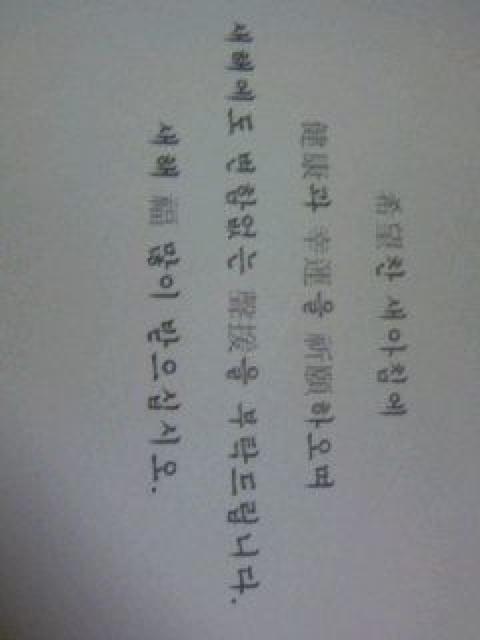 希望찬 새아침에
健康과 幸運을 祈願하오며
새해에도 변함없는 聲援을 부탁드립니다.
새해 福 많이 받으십시오.